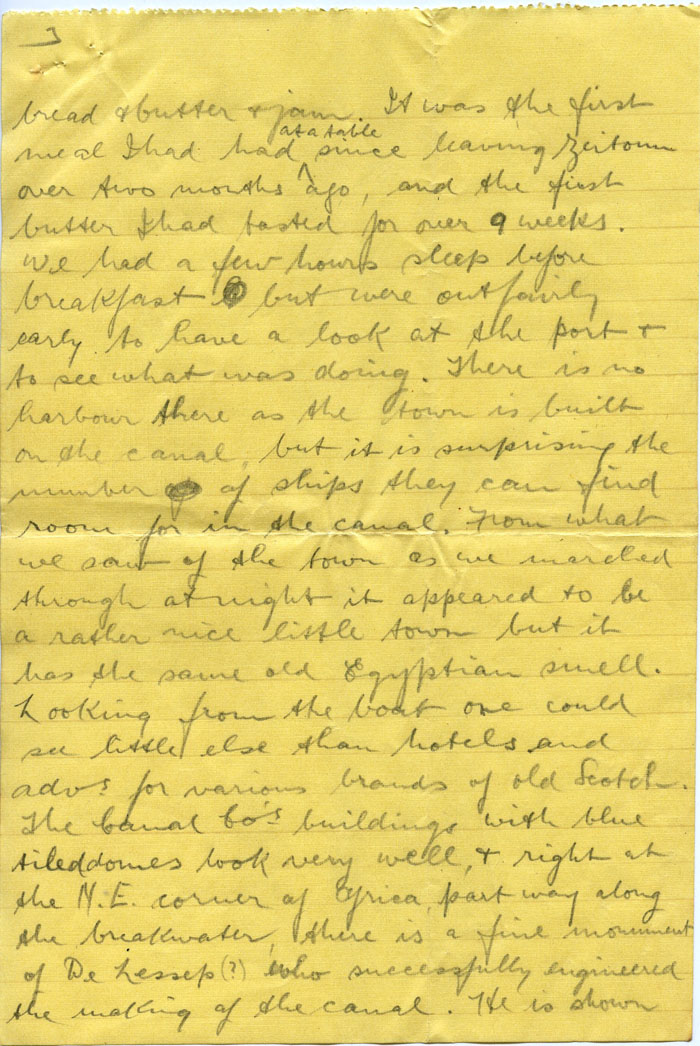 bread & butter & jam. It was the first
at a table
meal I had had ^ since leaving Zeitoun
over two months ago, and the first
butter I had tasted for over 9 weeks.
We had a few hours sleep before
breakfast but were out fairly
early to have a look at the port &
to see what was doing. There is no
harbour there as the town is built
on the canal, but it is surprising the
number of ships they can find
room for in the canal. From what
we saw of the town as we marched
through at night it appeared to be
a rather nice little town but it
has the same old Egyptian smell.
Looking from the boat one could
see little else than hotels and
advs for various brands of old Scotch.
The Canal Co's buildings with blue
tiled domes look very well, & right at
the N.E. corner of Africa, part way along
the breakwater, there is a fine monument
of De Lessep (?) who successfully engineered
the making of the canal. He is shown